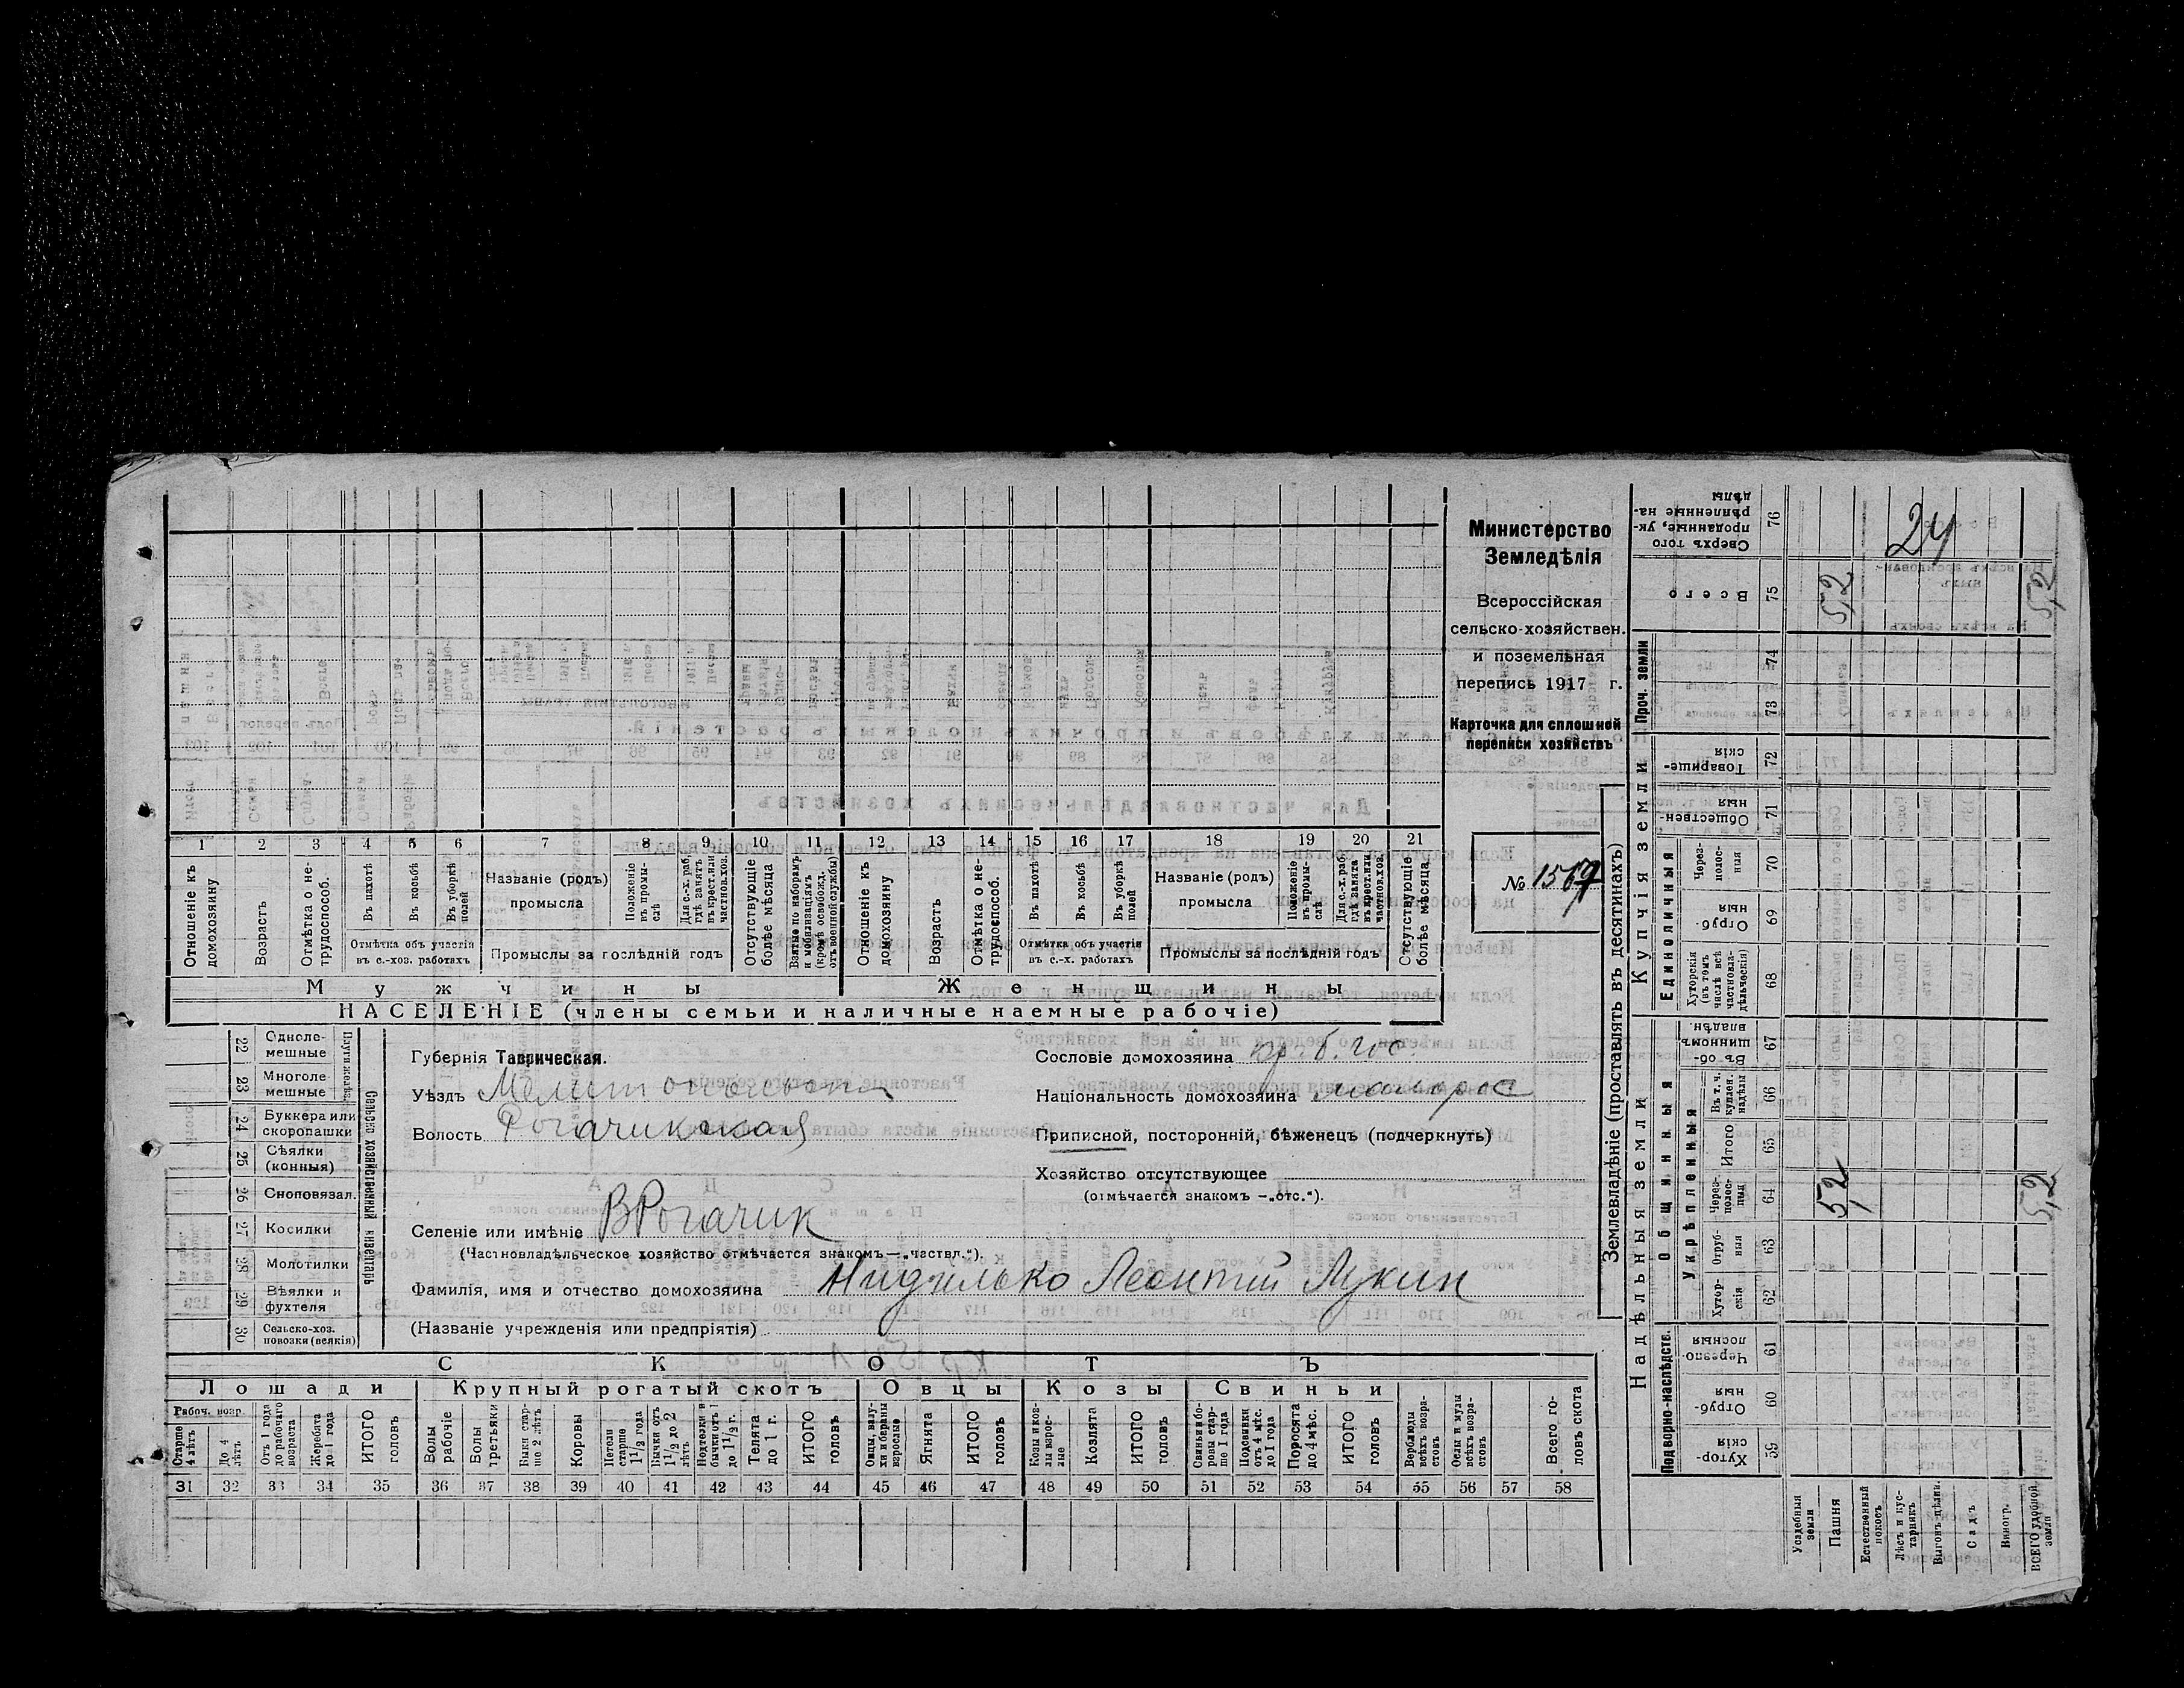 1 2 3 4 5 6 7 8 9 10 11 12 13 14 15 16 17 18 19 20 21
Отношеніе къ домохозяину
Возрастъ
Отмѣтка о не-трудоспособ.
Въ пахотѣ
Въ косьбѣ
Въ уборкѣ полей
Отмѣтка объ участіи
въ с.-хоз. работахъ
Названіе (родъ)
промысла
Положеніе въ промы-слѣ
Для с.-х. раб. гдѣ занятъ въ крест. или частнов. хоз.
Промыслы за послѣдній годъ
Отсутствующіе болѣе мѣсяца
Взятые по наборамъ и мобилизаціямъ (кромѣ освобожд. отъ военной службы)
Отношеніе къ домохозяину
Возрастъ
Отмѣтка о не-трудоспособ.
Въ пахотѣ
Въ косьбѣ
Въ уборкѣ полей
Отмѣтка объ участіи
въ с.-х. работахъ
Названіе (родъ)
промысла
Положеніе въ промы-слѣ
Для с.-х. раб. гдѣ занята въ крест. или частнов. хоз.
Промыслы за послѣдній годъ
Отсутствующіе болѣе мѣсяца
Мужчины Женщины
НАСЕЛЕНІЕ (члены семьи и наличные наемные рабочіе)
Министерство
Земледѣлія
Всероссійская
сельско-хозяйствен.
и поземельная
перепись 1917 г.
Карточка для сплошной
переписи хозяйствъ
№ 1567
22 Одноле-мешные
23 Многоле-мешные
24 Буккера или скоропашки
25 Сѣялки (конныя)
26 Сноповязал.
27 Косилки
28 Молотилки
29 Вѣялки и фухтеля
30 Сельско-хоз. повозки (всякія)
Сельско хозяйственный инвентарь
Губернія Таврическая.
Уѣздъ Мелитопольскій
Волость Рогачикская
Селеніе или имѣніе В Рогачик
(Частновладѣльческое хозяйство отмѣчается знакомъ—„частвл.“).
Фамилія, имя и отчество домохозяина Нидилько Леонтий Лукин
(Названіе учрежденія или предпріятія)
Сословіе домохозяина кр. б. гос.
Національность домохозяина малорос
Приписной, посторонній, бѣженецъ (подчеркнуть)
Хозяйство отсутствующее
(отмѣчается знакомъ —„отс.“).
СКОТЪ
Лошади Крупный рогатый скотъ Овцы Козы Свиньи
Рабоч. возр.
Старше 4 лѣтъ
До 4 лѣтъ
Отъ 1 года до рабочаго возраста
Жеребята до 1 года
ИТОГО головъ
Волы рабочіе
Волы третьяки
Быки стар-ше 2 лѣтъ
Коровы
Нетели старше 1 1/2 года
Бычки отъ 1 1/2 до 2 лѣтъ
Нетели и бычки отъ 1 до 1 1/2 г.
Телята до 1 г.
ИТОГО головъ
Овцы, валу-хи и бараны взрослые
Ягнята
ИТОГО головъ
Козы и коз-лы взрос-лые
Козлята
ИТОГО головъ
Свиньи и бо-ровы стар-ше 1 года
Подсвинки отъ 4 мѣс. до 1 года
Поросята до 4 мѣс.
ИТОГО головъ
Верблюды всѣхъ возра-стовъ
Ослы и мулы всѣхъ возра-стовъ
Всего го-ловъ скота
31 32 33 34 35 36 37 38 39 40 41 42 43 44 45 46 47 48 49 50 51 52 53 54 55 56 57 58
Землевладѣніе (проставлять въ десятинахъ)
Надѣльныя земли Купчія земли Проч. земли
Подворно-наслѣдств. Общинныя Единоличныя
Укрѣпленныя
Хутор-скія 59
Отруб-ныя 60
Черезпо-лосныя 61
Хутор-скія 62
Отруб-ныя 63
Через-полос-ныя 64
Итого 65
Въ т. ч. куплен. надѣлы 66
Въ об-щинномъ владѣн. 67
Хуторскія (въ томъ числѣ всѣ частновла-дѣльческія) 68
Отруб-ныя 69
Через-полос-ныя 70
Обществен-ныя 71
Товарище-скія 72
73
74
Всего 75
Сверхъ того проданные, ук-рѣпленные на-дѣлы 76
Усадебныя земли
Пашня
Естественный покосъ
Лѣсъ и кус-тарникъ
Выгонъ цѣлин.
Садъ
Виногр.
ВСЕГО удобной земли
5,2
5,2
5,2
5,2
24